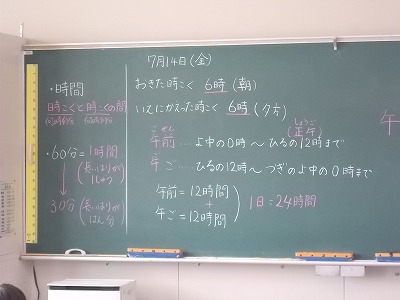 7月14日(金)
・時間
時こくと時こくの間
・60分=1時間
(長いはりが1しゅう)
30分(長いはりがはん分)
おきた時こく 6時(朝)
いえにかえった時こく 6時(夕方)
しょうご
(正午)
ごぜん
午前…よ中の0時〜ひるの12時まで
午ご…ひるの12時〜つぎのよ中の0時まで
午前=12時間
+
午ご=12時間
1日=24時間
午